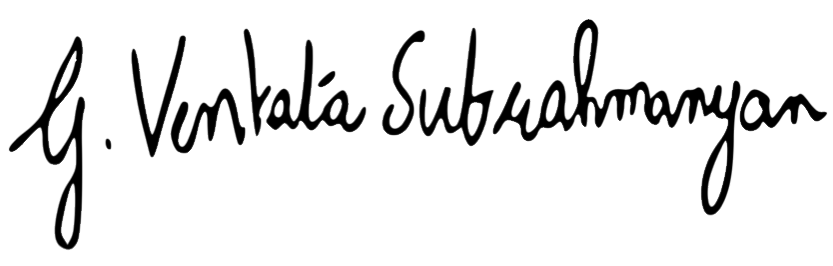 G. Venkata Subrahmanyan